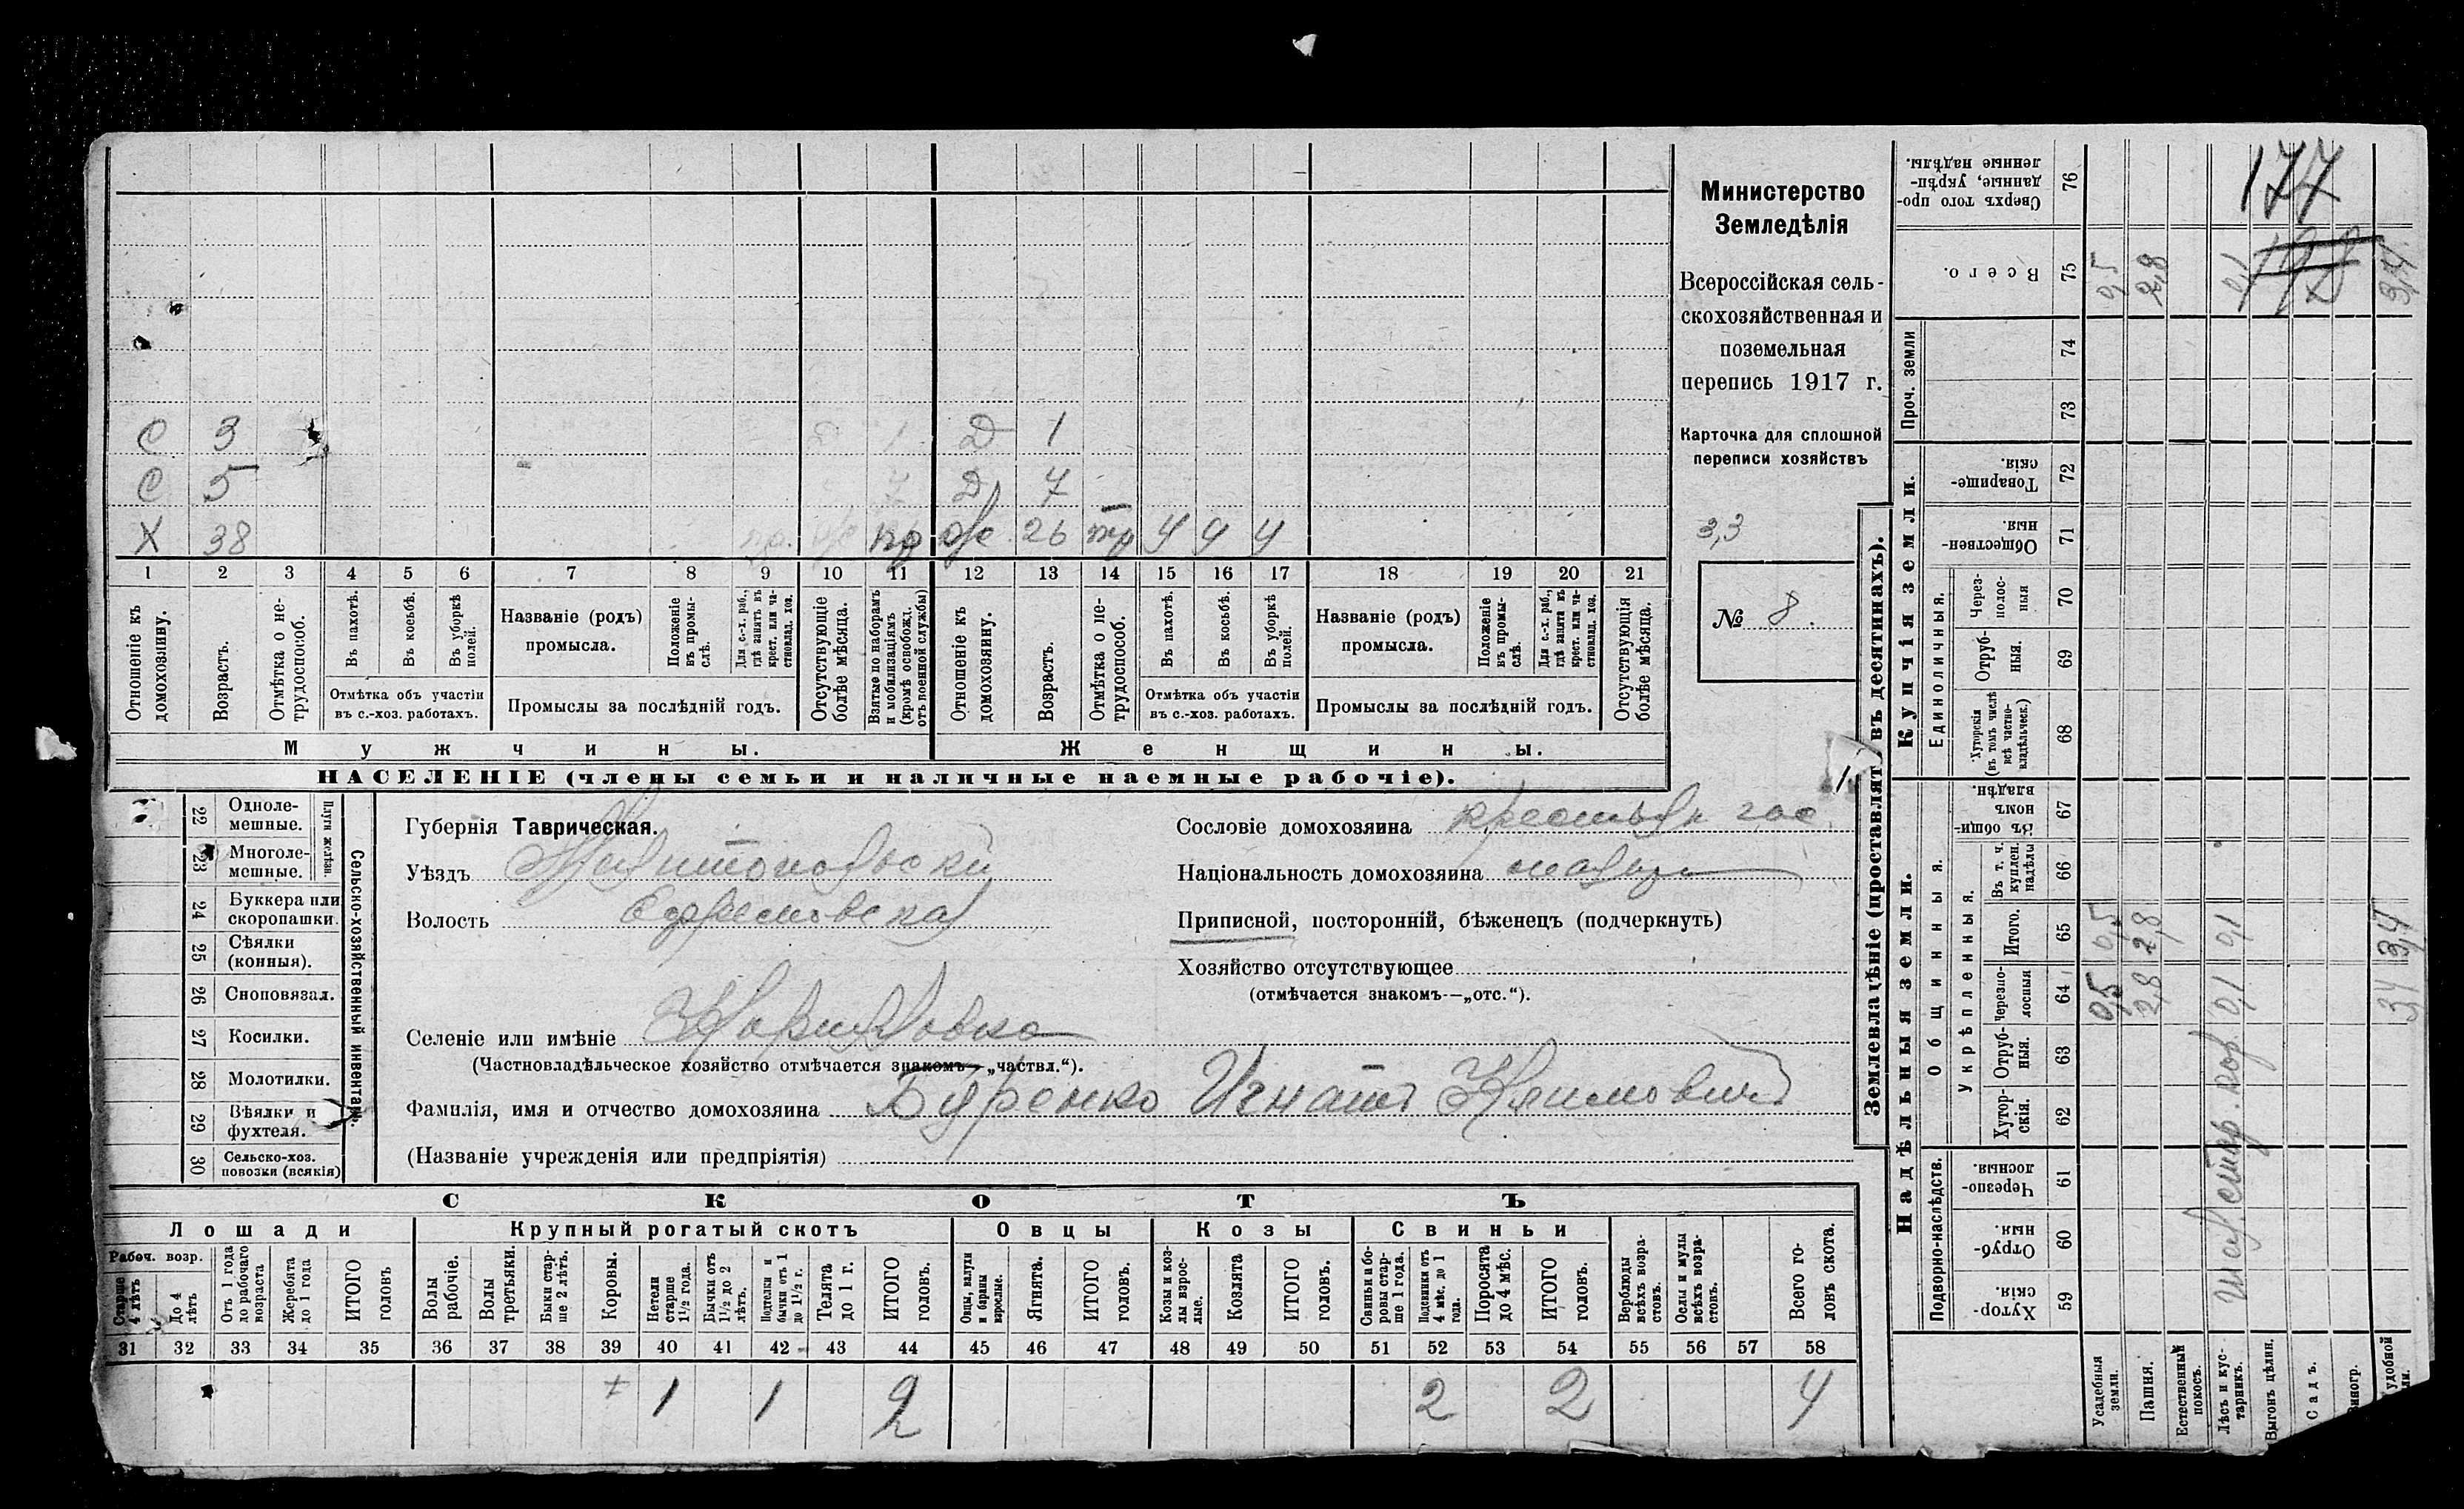 С 3 Д 1
С 5 Д 7
Х 38 26 4 4 4
1 2 3 4 5 6 7 8 9 10 11 12 13 14 15 16 17 18 19 20 21
Отношеніе къ домохозяину.
Возрастъ.
Отмѣтка о не-трудоспособ.
Въ пахотѣ.
Въ косьбѣ.
Въ уборкѣ полей.
Отмѣтка объ участіи въ с.-хоз. работахъ.
Названіе (родъ) промысла.
Положеніе въ промы-слѣ.
Для с.-х. раб., гдѣ занятъ въ крест. или ча-стновлад. хоз.
Промыслы за послѣдній годъ.
Отсутствующіе болѣе мѣсяца.
Взятые по наборамъ и мобилизаціямъ (кромѣ освобожд. отъ военной службы)
Отношеніе къ домохозяину.
Возрастъ.
Отмѣтка о не-трудоспособ.
Въ пахотѣ.
Въ косьбѣ.
Въ уборкѣ полей.
Отмѣтка объ участіи въ с.-хоз. работахъ.
Названіе (родъ) промысла.
Положеніе въ промы-слѣ.
Для с.-х. раб., гдѣ занята въ крест. или ча-стновлад. хоз.
Промыслы за послѣдній годъ.
Отсутствующія болѣе мѣсяца.
Мужчины. Женщины.
НАСЕЛЕНІЕ (члены семьи и наличные наемные рабочіе).
Министерство
Земледѣлія
Всероссійская сель-
скохозяйственная и
поземельная
перепись 1917 г.
Карточка для сплошной
переписи хозяйствъ
3,3
№ 8.
Сельско-хозяйственный инвентарь.
Плуги желѣзн.
22 Одноле-мешные.
23 Многоле-мешные.
24 Буккера или скоропашки.
25 Сѣялки (конныя).
26 Сноповязал.
27 Косилки.
28 Молотилки.
29 Вѣялки и фухтеля.
30 Сельско-хоз. повозки (всякія)
Губернія Таврическая.
Уѣздъ Мелитопольскій
Волость Ефремовская
Селеніе или имѣніе
(Частновладѣльческое хозяйство отмѣчается знакомъ—„частвл.“).
Сословіе домохозяина крестьян. гос.
Національность домохозяина малор
Приписной, посторонній, бѣженецъ (подчеркнуть)
Хозяйство отсутствующее
(отмѣчается знакомъ—„отс.“).
Фамилія, имя и отчество домохозяина Буренко Игнатъ Климовичъ
(Названіе учрежденія или предпріятія)
СКОТЪ
Лошади Крупный рогатый скотъ Овцы Козы Свиньи
Рабоч. возр.
Старше 4 лѣтъ
До 4 лѣтъ
Отъ 1 года до рабочаго возраста
Жеребята до 1 года
ИТОГО головъ
Волы рабочіе.
Волы третьяки.
Быки стар-ше 2 лѣтъ.
Коровы.
Нетели старше 1½ года.
Бычки отъ 1½ до 2 лѣтъ.
Подтелки и бычки отъ 1 до 1½ г.
Телята до 1 г.
ИТОГО головъ.
Овцы, валухи и бараны взрослые.
Ягнята.
ИТОГО головъ.
Козы и коз-лы взрос-лые.
Козлята
ИТОГО головъ.
Свиньи и бо-ровы стар-ше 1 года.
Подсвинки отъ 4 мѣс. до 1 года.
Поросята до 4 мѣс.
ИТОГО головъ.
Верблюды всѣхъ возра-стовъ.
Ослы и мулы всѣхъ возра-стовъ.
Всего го-ловъ скота.
31 32 33 34 35 36 37 38 39 40 41 42 43 44 45 46 47 48 49 50 51 52 53 54 55 56 57 58
1 1 2 2 2 4
Землевладѣніе (проставлять въ десятинахъ).
Надѣльныя земли. Купчія земли. Проч. земли
Подворно-наслѣдств.
Общинныя.
Укрѣпленныя.
Единоличныя.
59 Хутор-скія.
60 Отруб-ныя.
61 Черезпо-лосныя.
62 Хутор-скія.
63 Отруб-ныя.
64 Черезпо-лосныя
65 Итого.
66 Въ т. ч. куплен. надѣлы
67 Въ общин-номъ владѣн.
68 Хуторскія (въ томъ числѣ всѣ частно-владѣльческ.)
69 Отруб-ныя.
70 Через-полос-ныя
71 Обществен-ныя.
72 Товарище-скія.
73
74
75 Всего.
76 Сверхъ того про-данные, укрѣп-ленные надѣлы.
Усадебныя земли. 0,5 0,5 0,5
Пашня. 2,8 2,8 2,8
Естественный покосъ.
Лѣсъ и кус-тарникъ. 0,1 0,1 0,1
Выгонъ цѣлин.
Садъ.
удобной 3,4 3,4 3,4
177
198